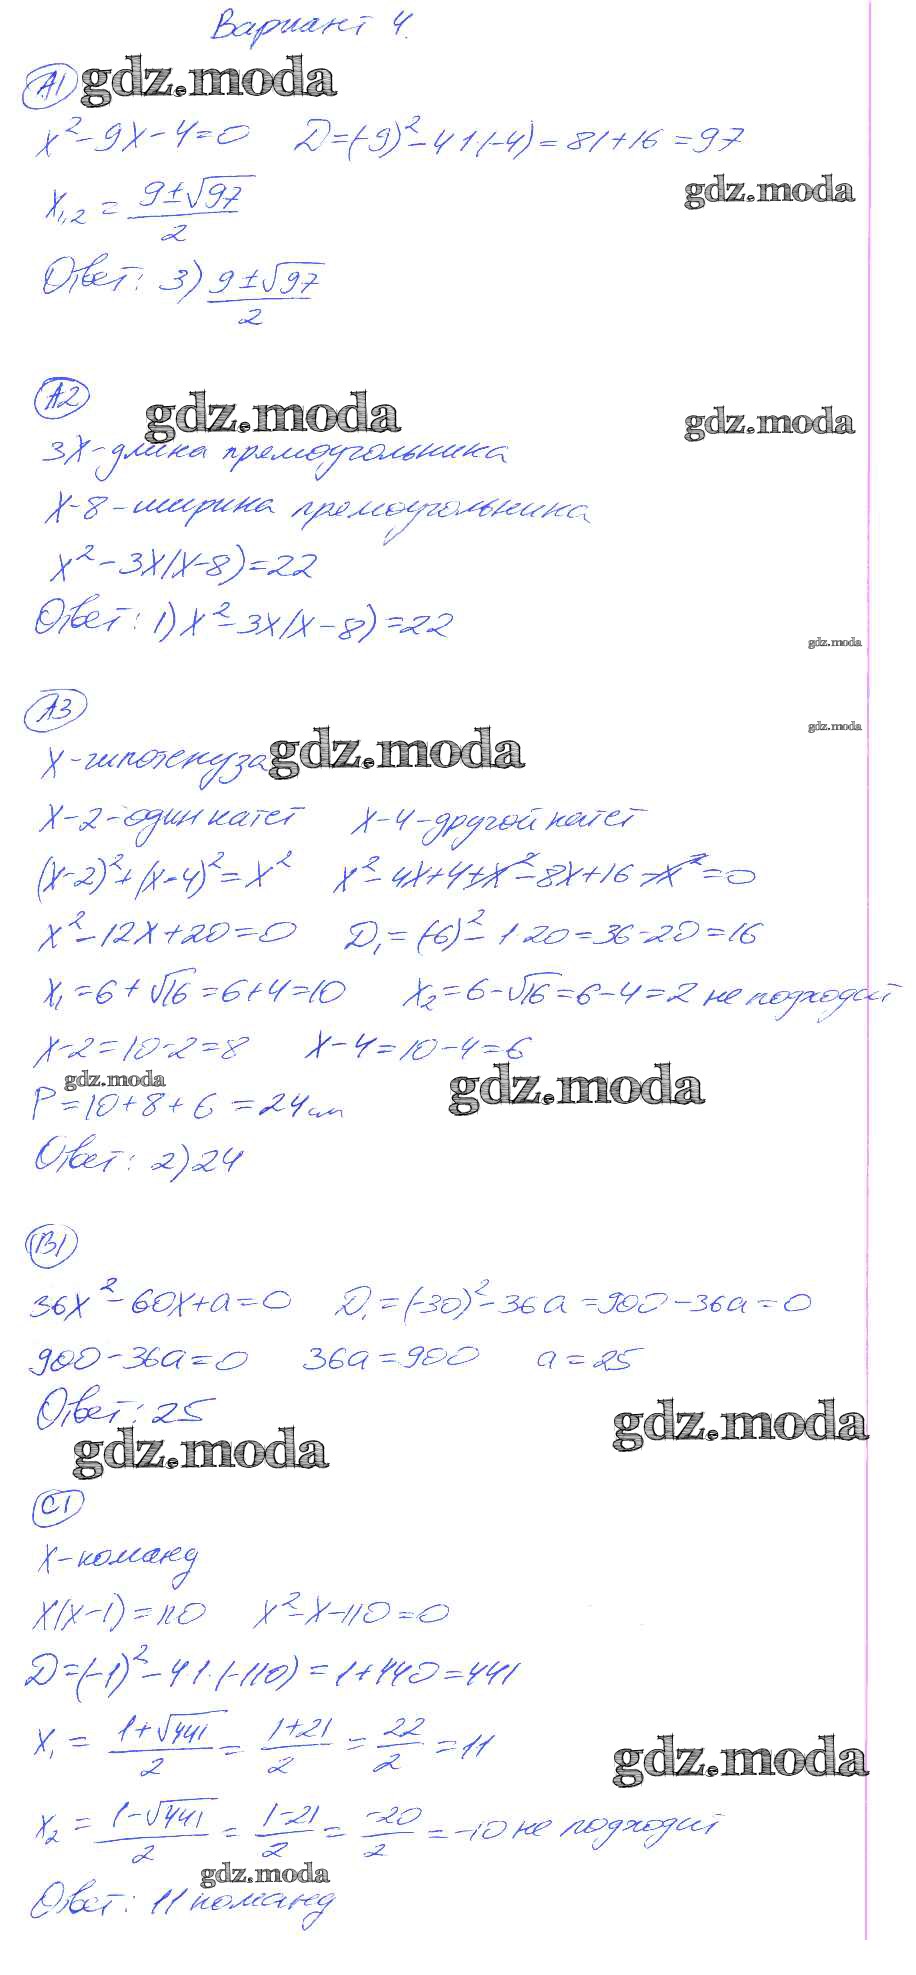 Вариант 4.
А1 gdz.moda
x² - 9x - 4 = 0 D = (-9)² - 4·1·(-4) = 81 + 16 = 97
gdz.moda
x₁,₂ = (9 ± √97)/2
Ответ: 3) (9 ± √97)/2
А2
gdz.moda gdz.moda
3x - длина прямоугольника
x - 8 - ширина прямоугольника
x² - 3x(x - 8) = 22
Ответ: 1) x² - 3x(x - 8) = 22
gdz.moda
А3
gdz.moda
x - гипотенуза gdz.moda
x - 2 - один катет x - 4 - другой катет
(x - 2)² + (x - 4)² = x² x² - 4x + 4 + x² - 8x + 16 - x² = 0
x² - 12x + 20 = 0 D₁ = (-6)² - 1·20 = 36 - 20 = 16
x₁ = 6 + √16 = 6 + 4 = 10 x₂ = 6 - √16 = 6 - 4 = 2 не подходит
x - 2 = 10 - 2 = 8 x - 4 = 10 - 4 = 6
gdz.moda gdz.moda
P = 10 + 8 + 6 = 24 см
Ответ: 2) 24
В1
36x² - 60x + a = 0 D₁ = (-30)² - 36a = 900 - 36a = 0
900 - 36a = 0 36a = 900 a = 25
Ответ: 25
gdz.moda gdz.moda
С1
x - команд
x(x - 1) = 110 x² - x - 110 = 0
D = (-1)² - 4·1·(-110) = 1 + 440 = 441
x₁ = (1 + √441)/2 = (1 + 21)/2 = 22/2 = 11
gdz.moda
x₂ = (1 - √441)/2 = (1 - 21)/2 = -20/2 = -10 не подходит
gdz.moda
Ответ: 11 команд